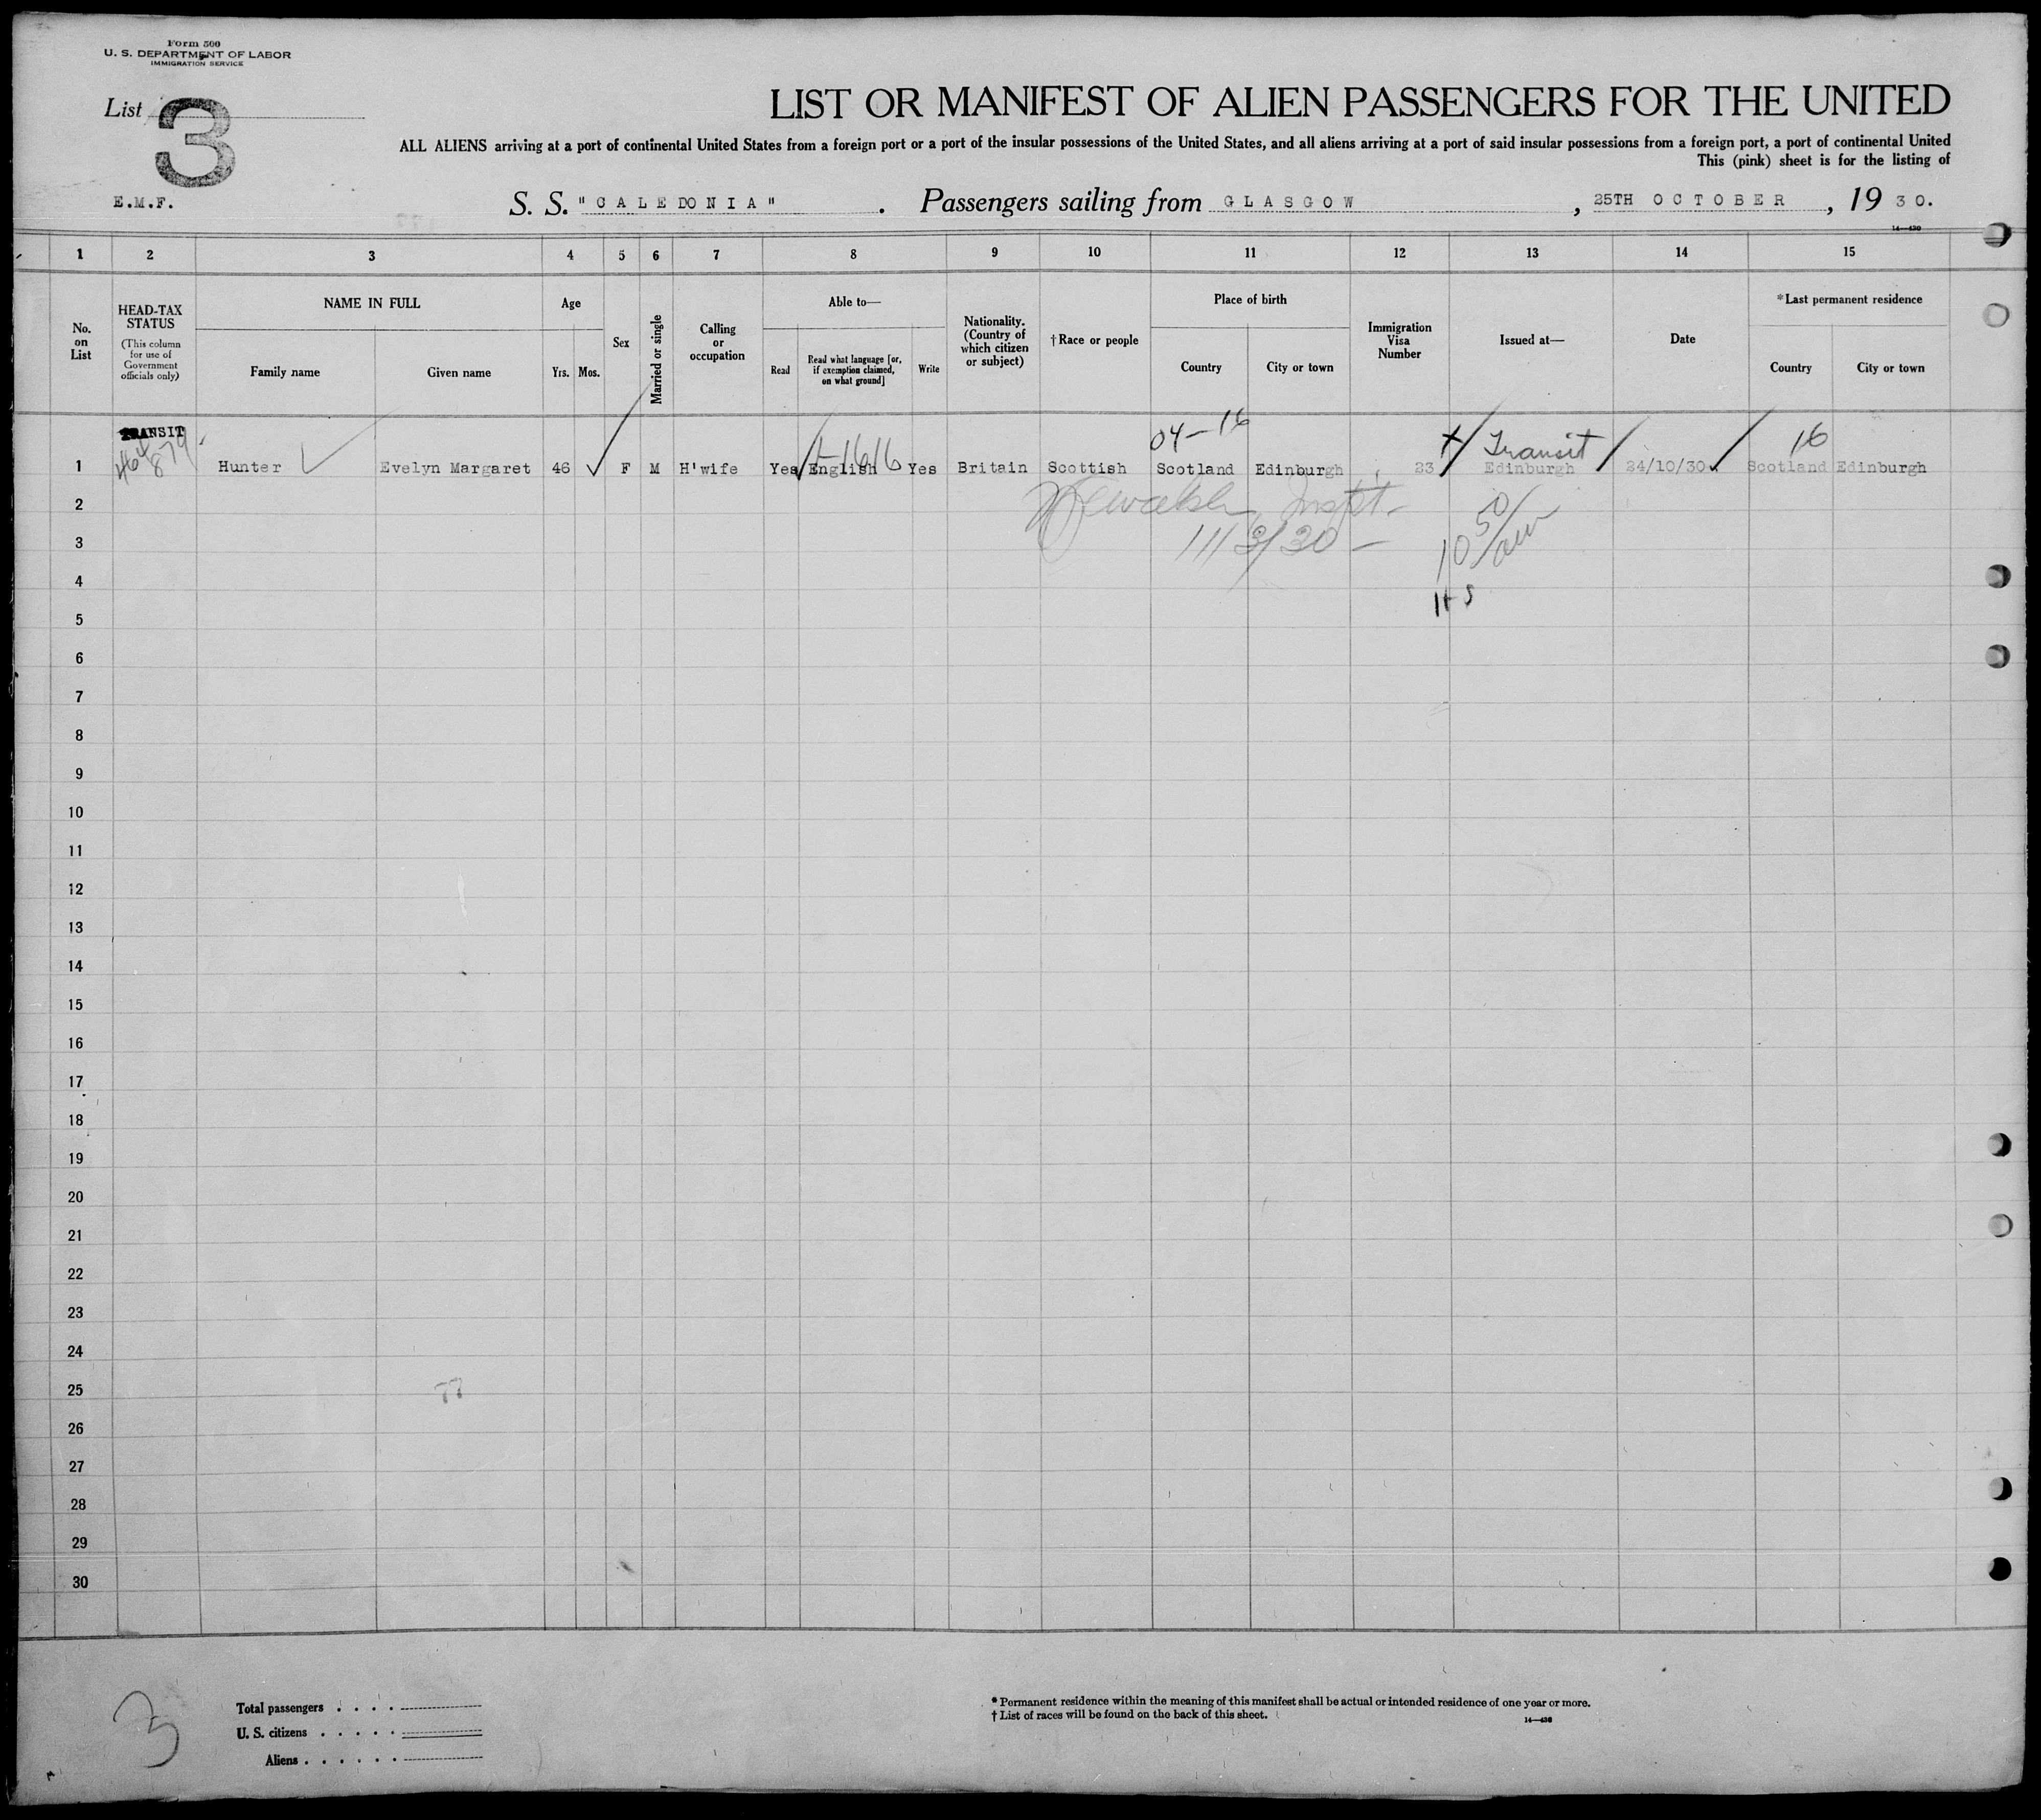 Form 500
U. S. DEPARTMENT OF LABOR
IMMIGRATION SERVICE
List 3
LIST OR MANIFEST OF ALIEN PASSENGERS FOR THE UNITED
ALL ALIENS arriving at a port of continental United States from a foreign port or a port of the insular possessions of the United States, and all aliens arriving at a port of said insular possessions from a foreign port, a port of continental United
This (pink) sheet is for the listing of
E.M.F.
S. S. "CALEDONIA". Passengers sailing from GLASGOW, 25TH OCTOBER, 1930.
14—430
1 2 3 4 5 6 7 8 9 10 11 12 13 14 15
No. on List
HEAD-TAX STATUS (This column for use of Government officials only)
NAME IN FULL
Family name
Given name
Age
Yrs. Mos.
Sex
Married or single
Calling or occupation
Able to—
Read
Read what language [or, if exemption claimed, on what ground]
Write
Nationality. (Country of which citizen or subject)
†Race or people
Place of birth
Country
City or town
Immigration Visa Number
Issued at—
Date
*Last permanent residence
Country
City or town
TRANSIT
04-16
Transit
16
1 Hunter Evelyn Margaret 46 F M H'wife Yes English Yes Britain Scottish Scotland Edinburgh 23 Edinburgh 24/10/30 Scotland Edinburgh
2
3 11/3/30
4
5
6
7
8
9
10
11
12
13
14
15
16
17
18
19
20
21
22
23
24
25 77
26
27
28
29
30
3
Total passengers . . . .
U. S. citizens . . . . .
Aliens . . . . . .
* Permanent residence within the meaning of this manifest shall be actual or intended residence of one year or more.
† List of races will be found on the back of this sheet.
14—430